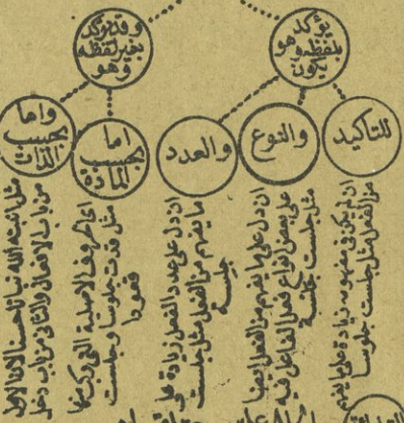 يؤكد
بلفظه وهو
يكون
وقد يؤكد
بغير لفظه
وهو
للتأكيد
والنوع
والعدد
اما
بحسب
المادة
واما
بحسب
الذات
ان لم يكن في مفهومه زيادة على ما يفهم
من الفعل مثل جلست جلوسا
ان دل على ما يفهم من الفعل
على بعض انواع فعل الفاعل فيه
مثل جلست جلسة
ان دل على عدد الفعل زيادة على
ما يفهم من الفعل مثل جلست
جلسة
اى الحروف الاصلية التى
مثل قعدت جلوسا وجلست
قعودا
مثل انبته الله نباتا حسنا الاول
من باب الافعال والثانى من باب دخل